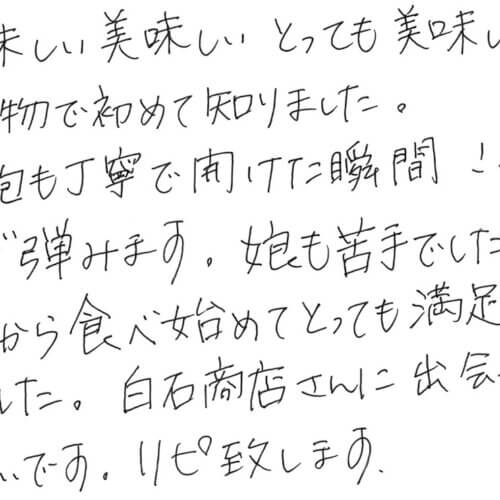 味しい美味しいとっても美味し
物で初めて知りました。
包も丁寧で開けた瞬間！
弾みます。娘も苦手でした
から食べ始めてとっても満足
した。白石商店さんに出会
いです。リピ致します